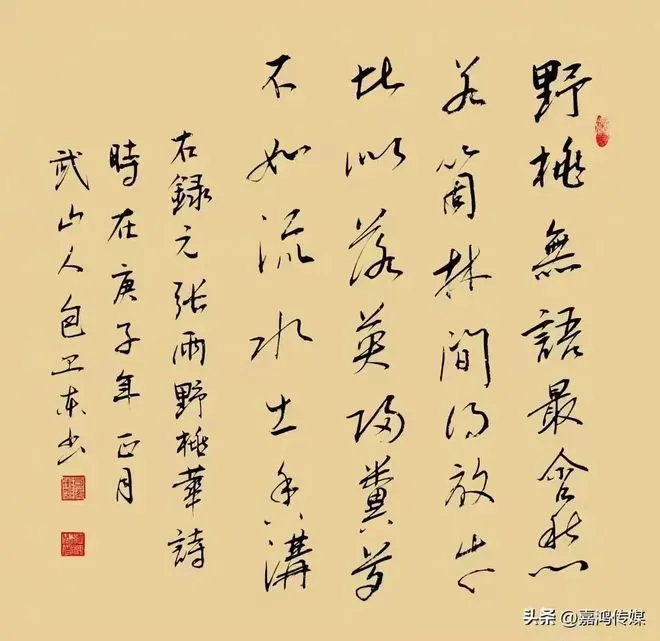 野桃無語最含愁
若箇林間得放
比似落英歸糞
不如流水土香溝
右録元張雨野桃華詩
時在庚子年正月
武山人包卫东书
头条 @嘉鸿传媒